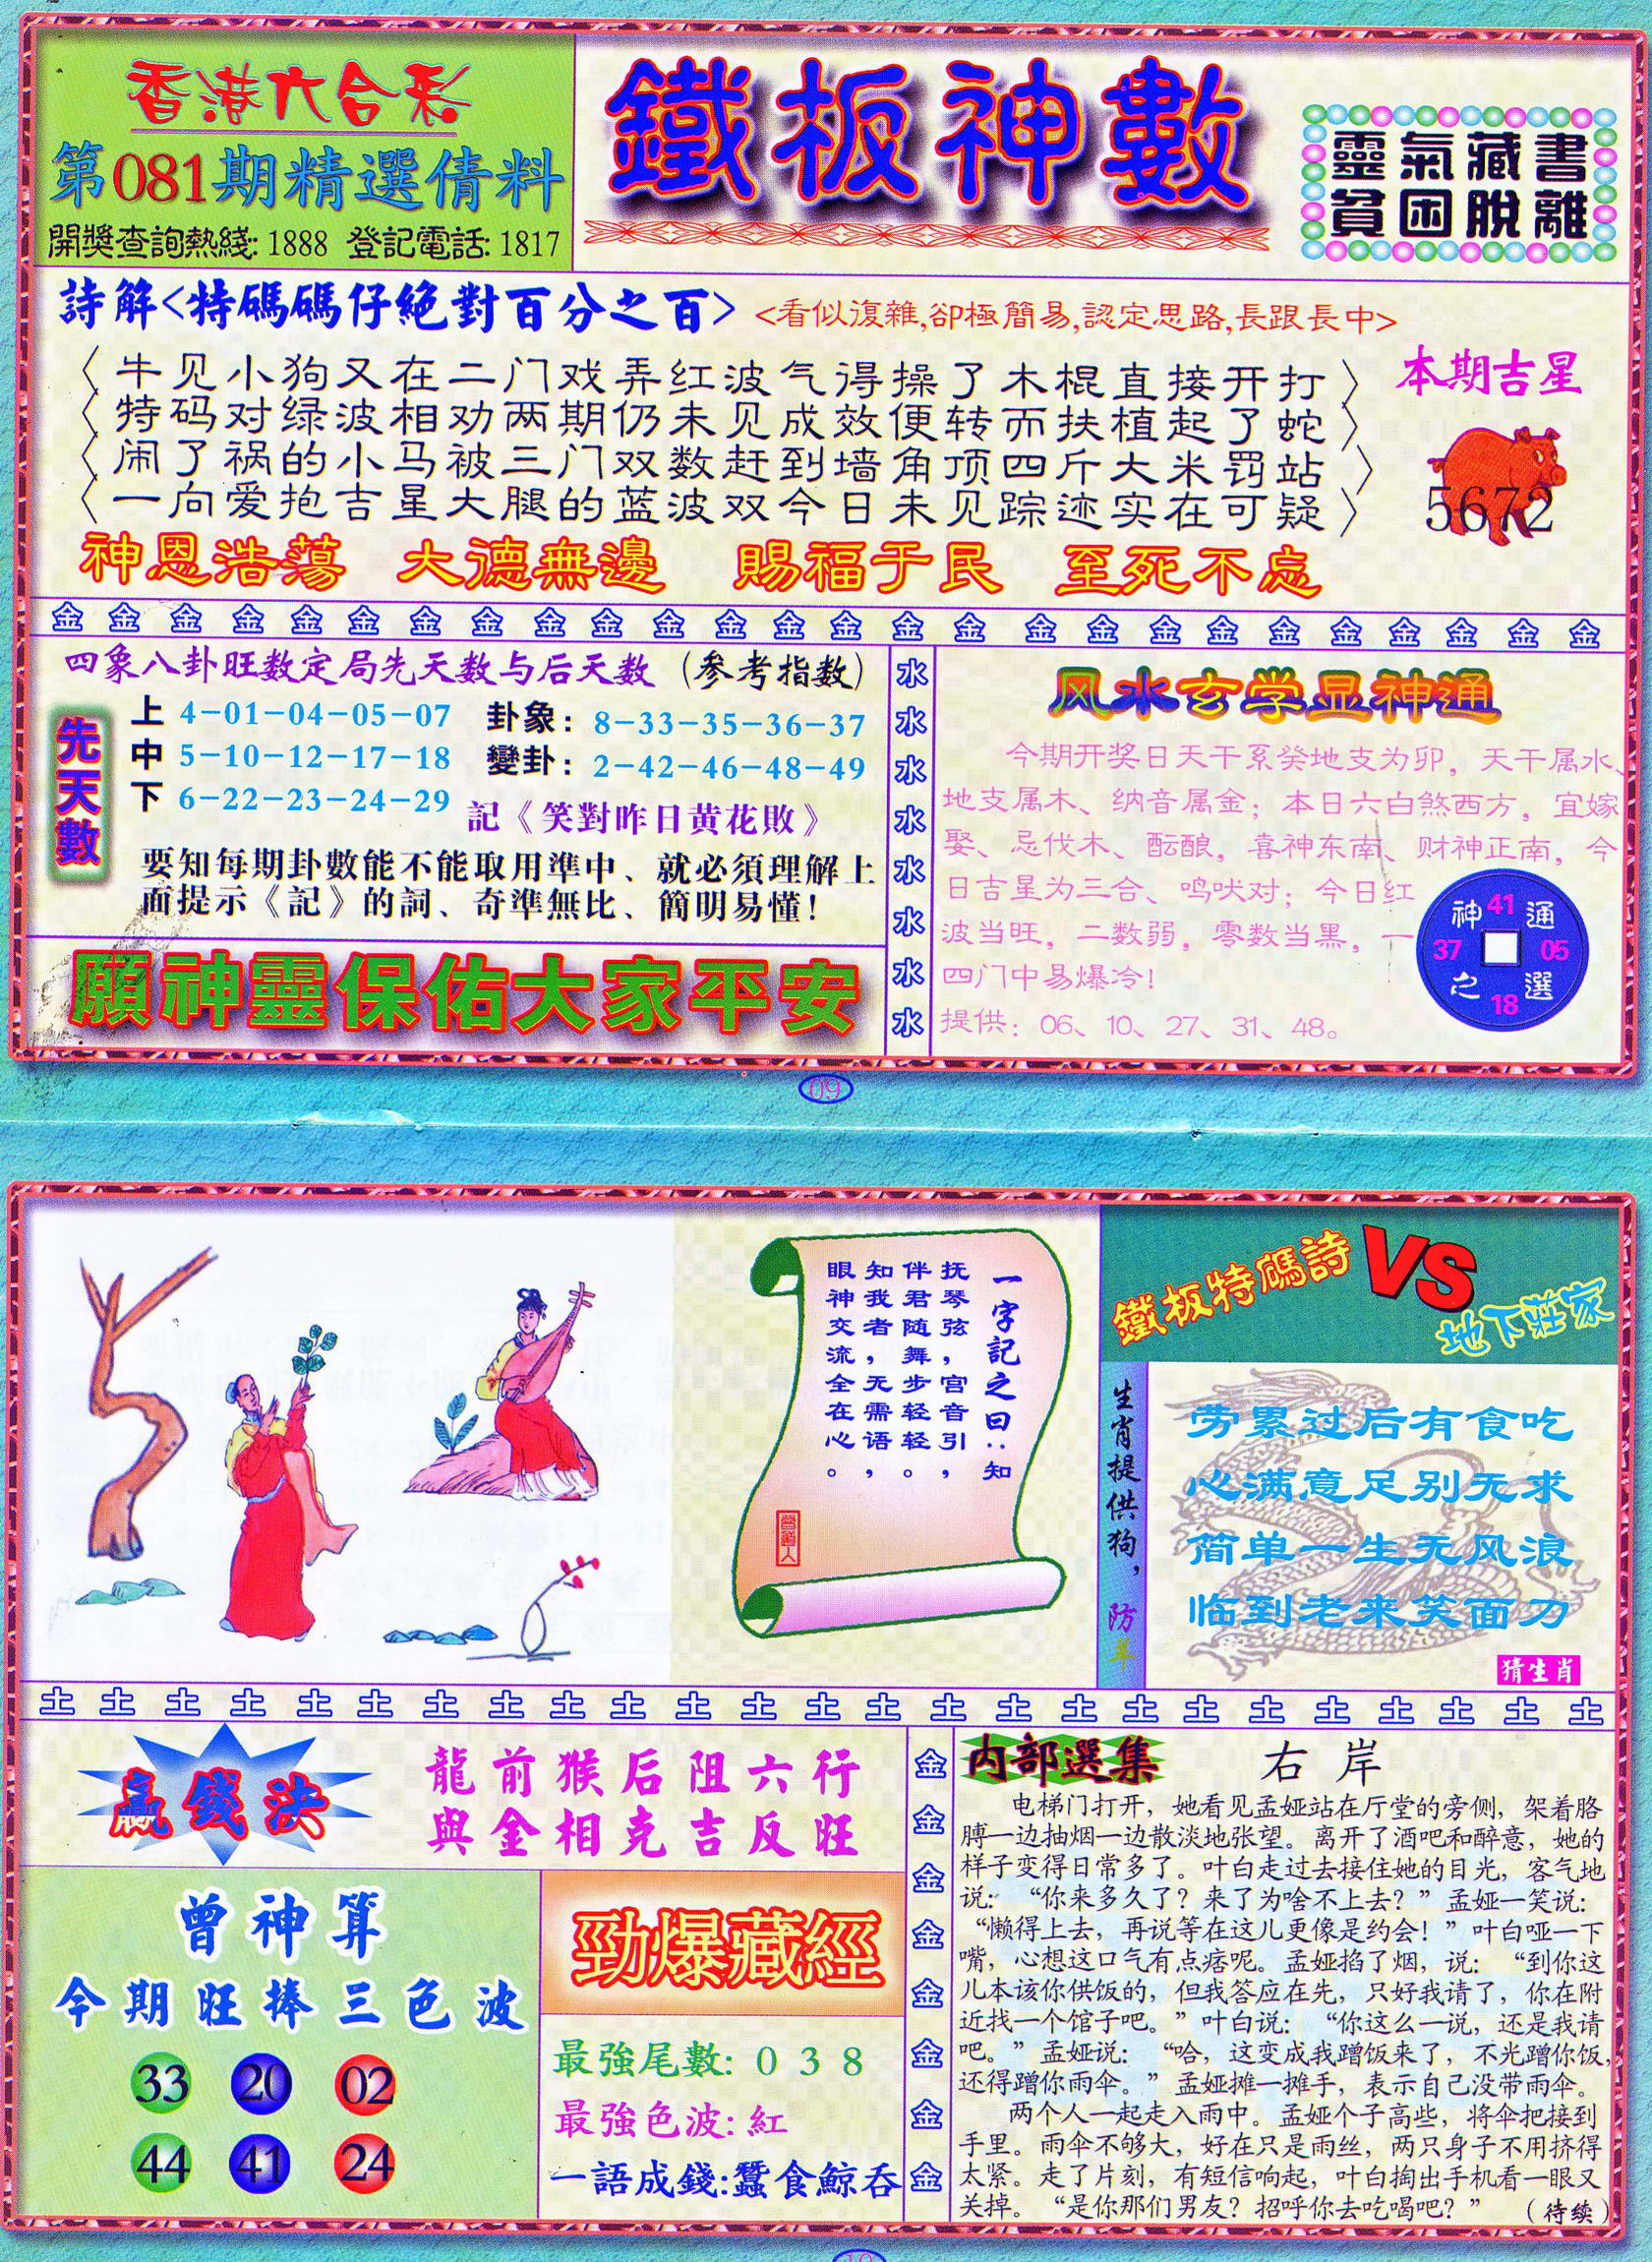 香港六合彩
第081期精選倩料
開獎查詢熱綫: 1888 登記電話: 1817
鐵板神數
靈氣藏書
貧困脫離
詩解<特碼碼仔絕對百分之百>
<看似復雜,卻極簡易,認定思路,長跟長中>
〈牛见小狗又在二门戏弄红波气得操了木棍直接开打〉
〈特码对绿波相劝两期仍未见成效便转而扶植起了蛇〉
〈闹了祸的小马被三门双数赶到墙角顶四斤大米罚站〉
〈一向爱抱吉星大腿的蓝波双今日未见踪迹实在可疑〉
本期吉星
5672
神恩浩蕩 大德無邊 賜福于民 至死不忘
金 金 金 金 金 金 金 金 金 金 金 金 金 金 金 金 金 金 金 金 金 金 金 金 金 金
四象八卦旺数定局先天数与后天数 (参考指数)
先天數
上 4-01-04-05-07 卦象: 8-33-35-36-37
中 5-10-12-17-18 變卦: 2-42-46-48-49
下 6-22-23-24-29
記《笑對昨日黄花敗》
要知每期卦數能不能取用準中、就必須理解上
面提示《記》的詞、奇準無比、簡明易懂!
願神靈保佑大家平安
水
水
水
水
水
水
水
水
风水玄学显神通
今期开奖日天干系癸地支为卯，天干属水、
地支属木、纳音属金；本日六白煞西方，宜嫁
娶、忌伐木、酝酿，喜神东南、财神正南，今
日吉星为三合、鸣吠对；今日红
波当旺，二数弱，零数当黑，一
四门中易爆冷!
提供：06、10、27、31、48。
神 41 通
37 05
之 18 選
09
一字記之曰：知
抚琴弦，宫音引，
伴君随舞步轻轻。
知我者，无需语，
眼神交流全在心。
曾道人
鐵板特碼詩
VS
地下莊家
生肖提供狗，防羊
劳累过后有食吃
心满意足别无求
简单一生无风浪
临到老来笑面刀
猜生肖
土 土 土 土 土 土 土 土 土 土 土 土 土 土 土 土 土 土 土 土 土 土 土 土 土
贏錢決
龍前猴后阻六行
與金相克吉反旺
曾神算
今期旺捧三色波
33 20 02
44 41 24
勁爆藏經
最強尾數: 0 3 8
最強色波: 紅
一語成錢:蠶食鯨吞
金
金
金
金
金
金
金
金
内部選集
右岸
电梯门打开，她看见孟娅站在厅堂的旁侧，架着胳
膊一边抽烟一边散淡地张望。离开了酒吧和醉意，她的
样子变得日常多了。叶白走过去接住她的目光，客气地
说：“你来多久了？来了为啥不上去？”孟娅一笑说：
“懒得上去，再说等在这儿更像是约会！”叶白哑一下
嘴，心想这口气有点痞呢。孟娅掐了烟，说：“到你这
儿本该你供饭的，但我答应在先，只好我请了，你在附
近找一个馆子吧。”叶白说：“你这么一说，还是我请
吧。”孟娅说：“哈，这变成我蹭饭来了，不光蹭你饭，
还得蹭你雨伞。”孟娅摊一摊手，表示自己没带雨伞。
两个人一起走入雨中。孟娅个子高些，将伞把接到
手里。雨伞不够大，好在只是雨丝，两只身子不用挤得
太紧。走了片刻，有短信响起，叶白掏出手机看一眼又
关掉。“是你那们男友？招呼你去吃喝吧？” (待续)
10